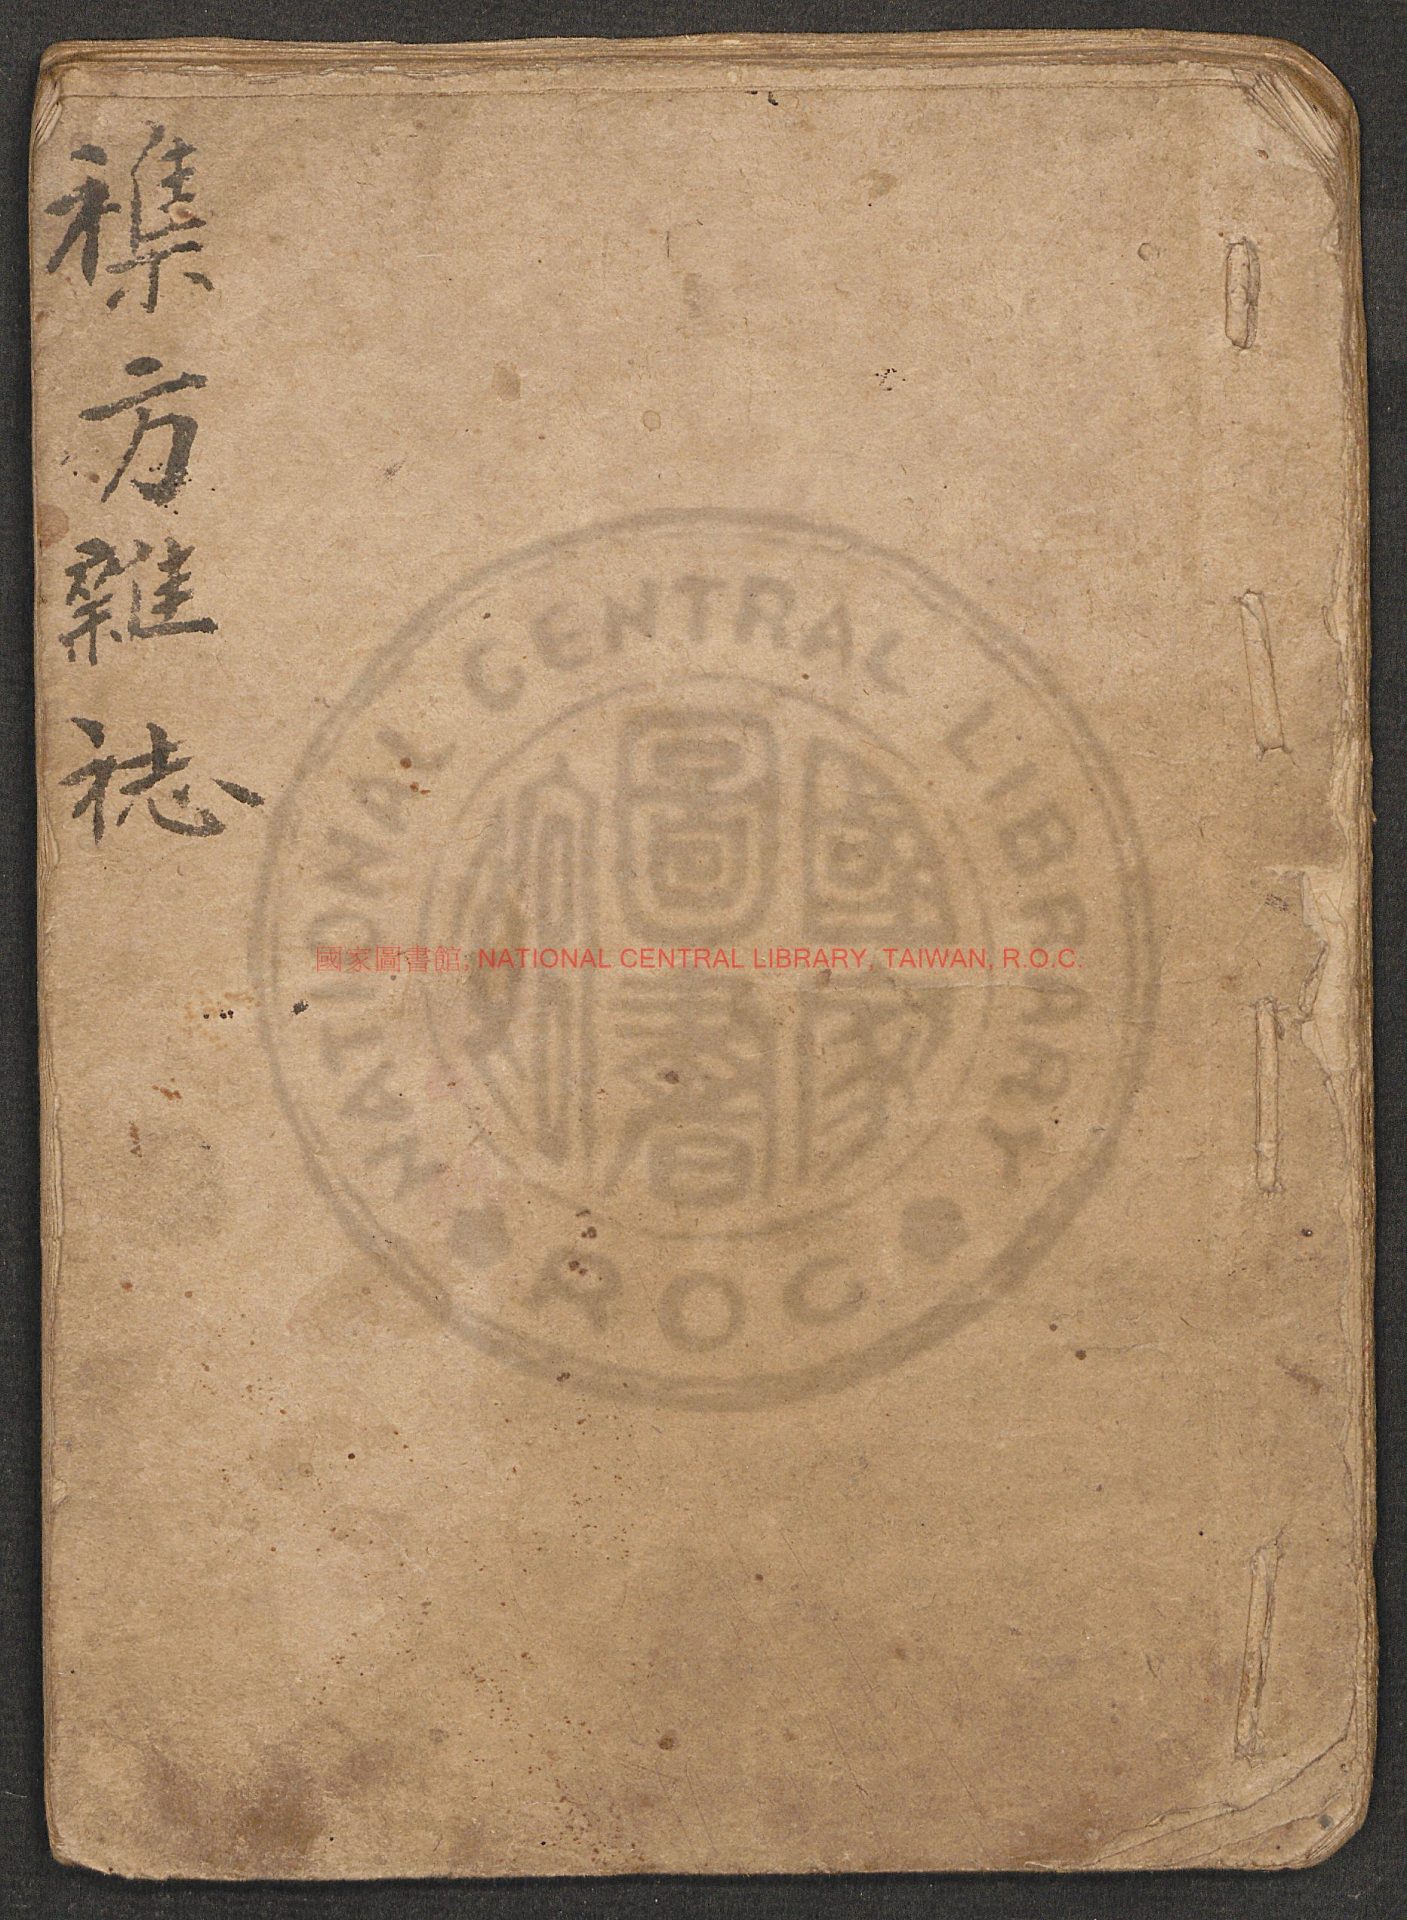 襍方雜誌
國家圖書館, NATIONAL CENTRAL LIBRARY, TAIWAN, R.O.C.
NATIONAL CENTRAL LIBRARY
國家圖書館
R O C